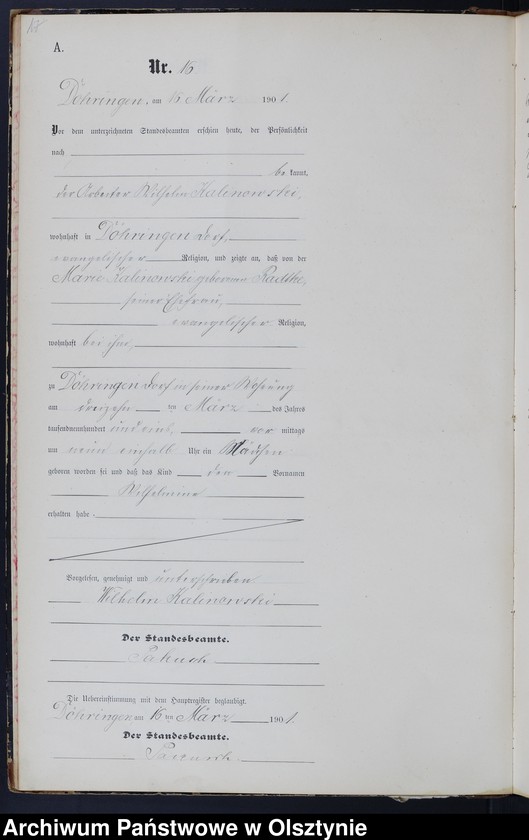 A.
Nr. 16
Döhringen, am 16 März 1901.
Vor dem unterzeichneten Standesbeamten erschien heute, der Persönlichkeit
nach
be kannt,
der Arbeiter Wilhelm Kalinowski,
wohnhaft in Döhringen Dorf,
evangelischer Religion, und zeigte an, daß von der
Marie Kalinowski geborenen Radtke,
seiner Ehefrau,
evangelischer Religion,
wohnhaft bei ihm,
zu Döhringen Dorf in seiner Wohnung
am dreizehn ten März des Jahres
tausendneunhundert und eins, vor mittags
um neun einhalb Uhr ein Mädchen
geboren worden sei und daß das Kind den Vornamen
Wilhelmine
erhalten habe.
Vorgelesen, genehmigt und unterschrieben
Wilhelm Kalinowski
Der Standesbeamte.
Die Uebereinstimmung mit dem Hauptregister beglaubigt.
Döhringen am 16 ten März 1901
Der Standesbeamte.
Archiwum Państwowe w Olsztynie